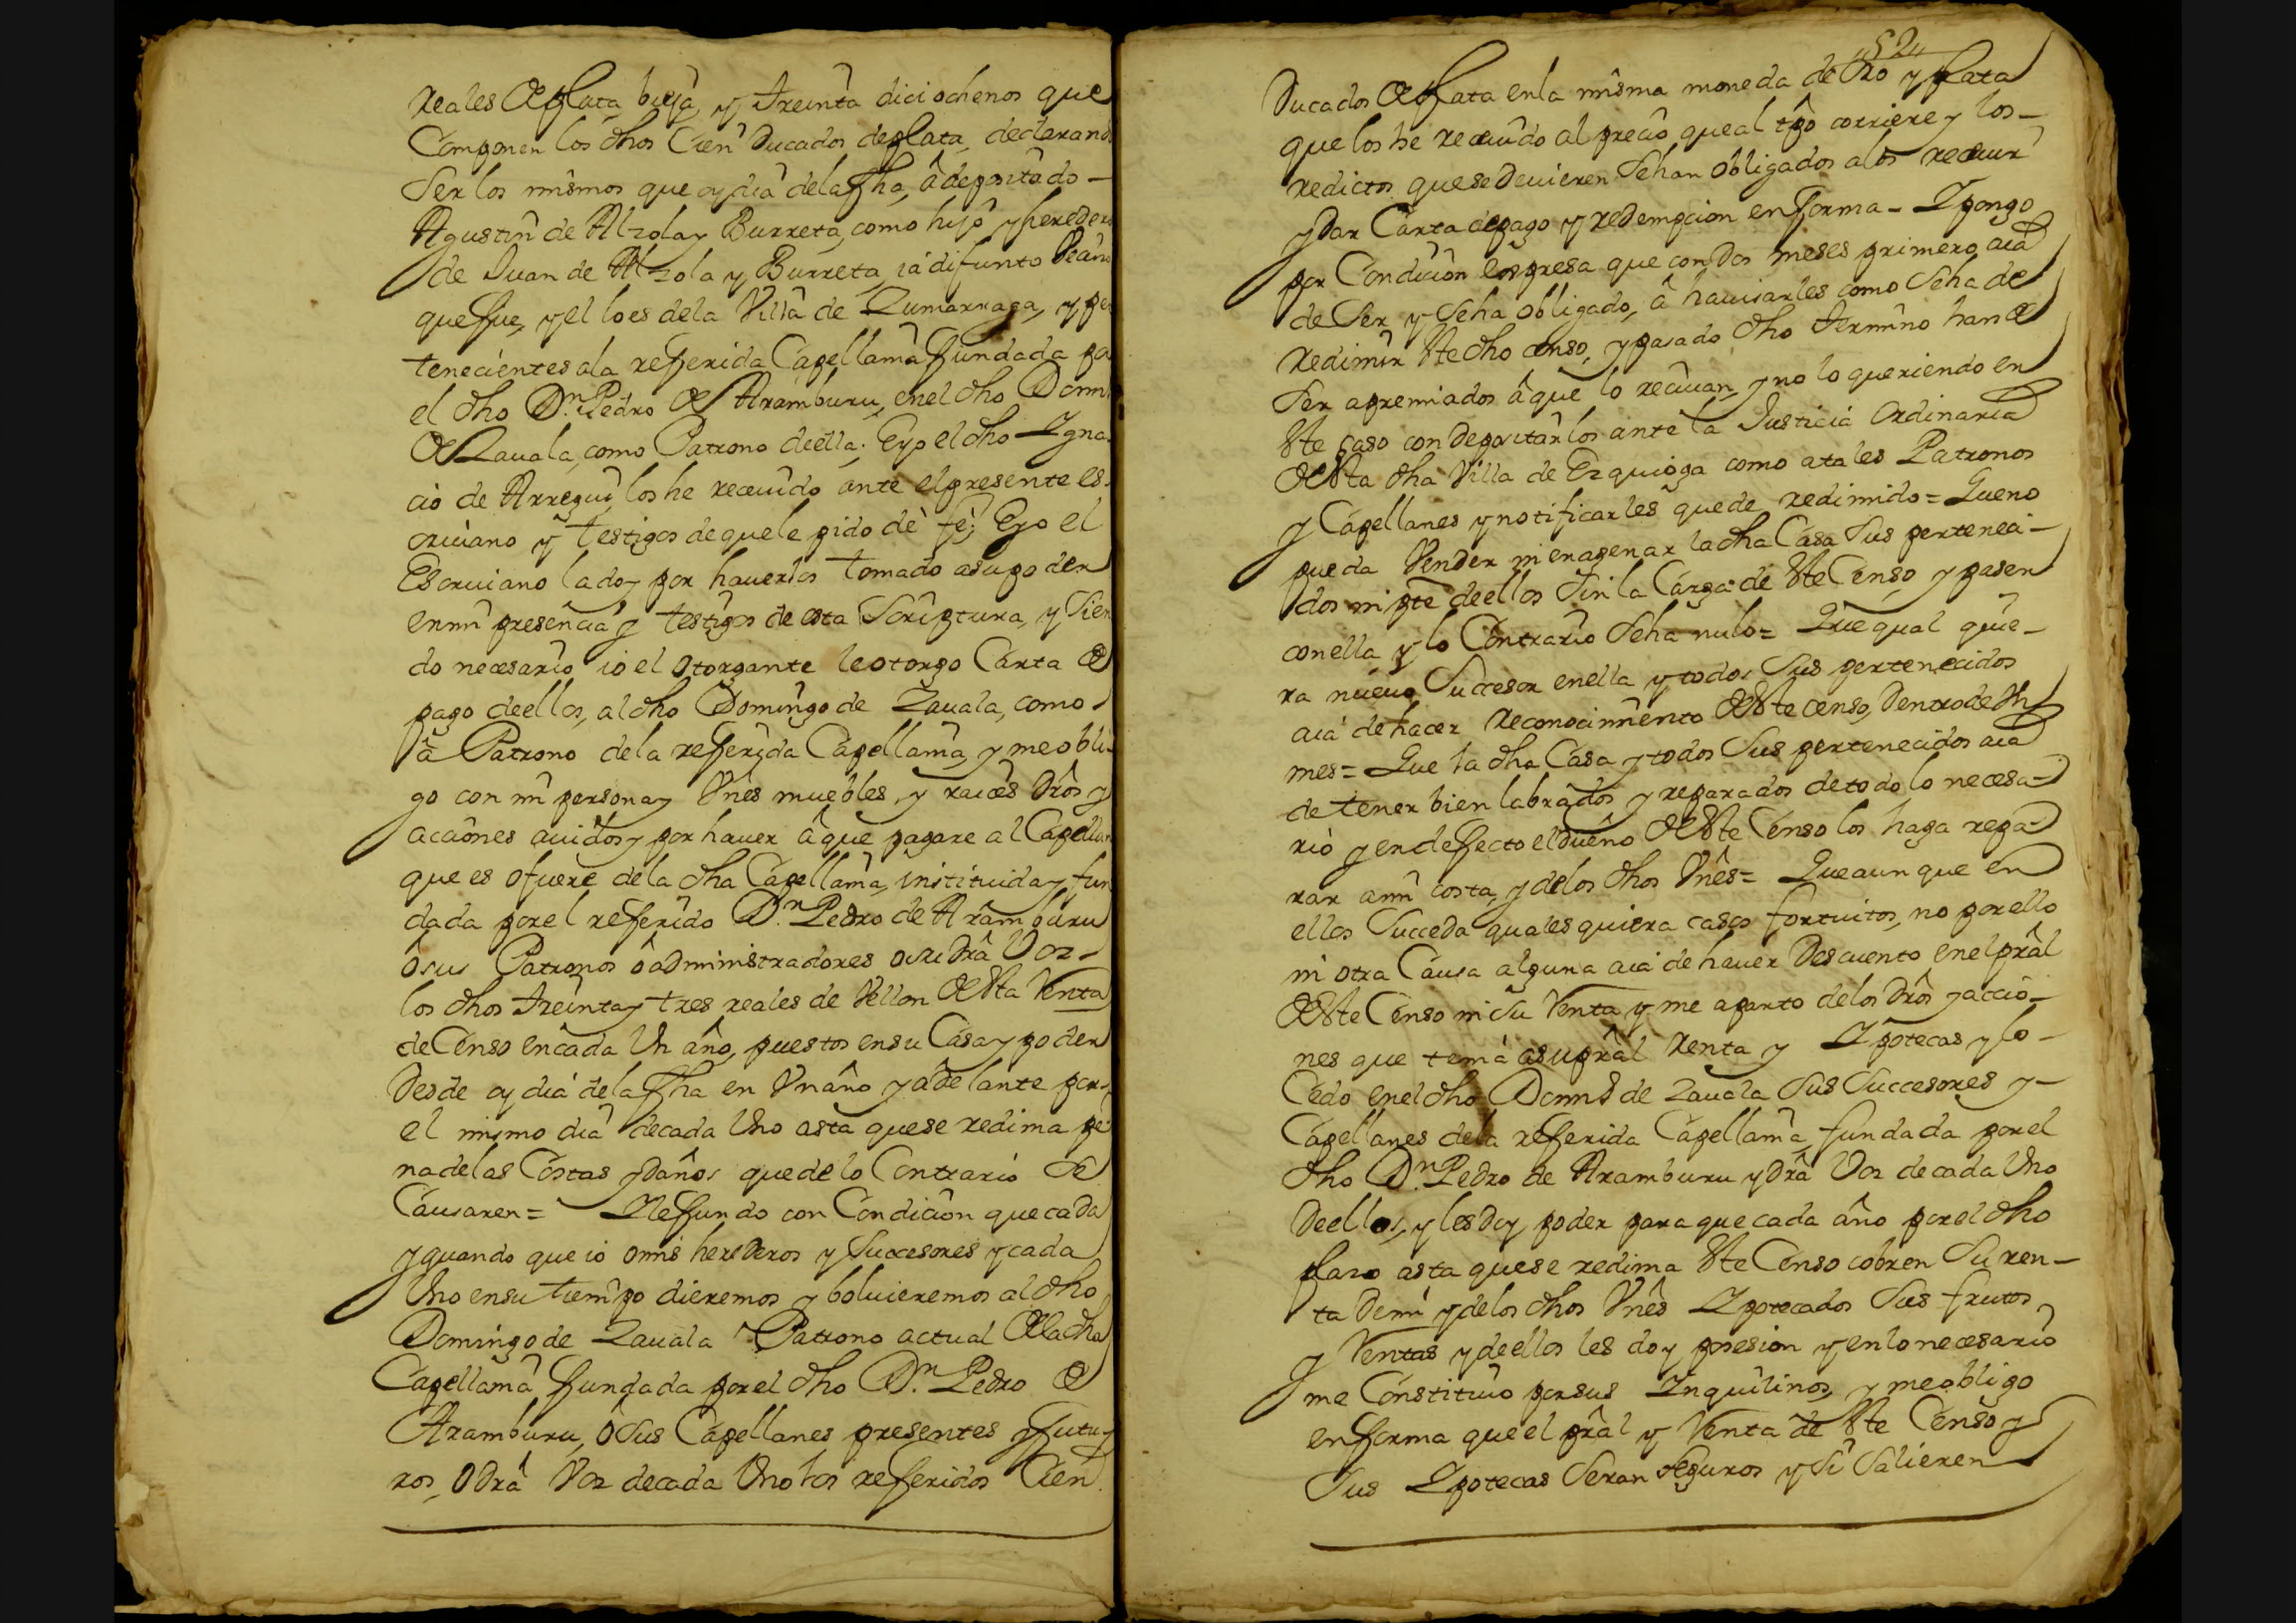 reales de plata bieja, y treinta dici ochenos que
Componen los dhos Cien Ducados de plata, declarando
Ser los mismos que oy dia dela fha, â depositado
Agustin de Alzola y Burreta, como hijo y heredero
de Juan de Alzola y Burreta, ia difunto Vecino
que fue, y el lo es dela Villa de Zumarraga, y per
tenecientes ala referida Capellania fundada por
el dho Dn. Pedro de Aramburu, en el dho Domingo
de Zauala, como Patrono de ella; E yo el dho Igna
cio de Arregui los he receuido ante el presente es
criuano y testigos de que le pido dè fè; E yo el
Escriuano la doy por hauerlos tomado a su poder
en mi presencia y testigos de esta Scriptura, y Sien
do necesario io el otorgante le otorgo Carta de
pago de ellos, al dho Domingo de Zauala, como
â Patrono dela referida Capellania y me obli
go con mi persona y Vnes muebles, y raices drôs y
acciones auidos y por hauer â que pagare al Capellan
que es o fuere dela dha Capellania, instituida y fun
dada por el referido Dn. Pedro de Aramburu
ô sus Patronos ô administradores o su drâ Voz
los dhos treinta y tres reales de Vellon de Sta Renta
de Censo en cada Vn año, puestos en su Casa y poder
Desde oy dia dela fha en Vn año y adelante por
el mismo dia de cada Vno asta que se redima pe
na delas Costas y daños que de lo Contrario se
Causaren = Y le fundo con Condicion que cada
y quando que io o mis herederos y Successores y cada
Vno en su tiempo dieremos y boluieremos al dho
Domingo de Zauala Patrono actual de la dha
Capellania fundada por el dho Dn. Pedro de
Aramburu, ô Sus Capellanes presentes y futu
ros, o drâ Voz de cada Vno los referidos Cien
52
Ducados de plata en la misma moneda de Oro y plata
que los he receuido al precio que al tpo corriere y los
redictos que se deuieren Sehan obligados a los receuir
y dar Carta de pago y redempcion en forma - Y pongo
por Condicion espresa que con dos meses primero aia
de Ser y Seha obligado, â hauisarles como Seha de
Redimir Ste dho censo, y pasado dho termino han de
Ser apremiados â que lo reciuan, y no lo queriendo en
Ste caso con depositarlos ante la Justicia Ordinaria
de Sta dha Villa de Ezquioga como a tales Patronos
y Capellanes y notificarles quede redimido = Que no
pueda Vender ni enagenar la dha Casa Sus perteneci
dos ni pte de ellos Sin la Carga de Ste Censo, y pasen
con ella y lo Contrario Seha nulo = Que qual quie
ra nueuo Successor en ella y todos Sus pertenecidos
aia de hacer Reconocimiento de Ste censo, Dentro de Vn
mes = Que la dha Casa y todos Sus pertenecidos aia
de tener bien labrados y reparados de todo lo necesa
rio y en defecto el dueño de Ste Censo los haga repa
rar a mi costa, y de los dhos Vnês = Que aunque en
ellos Succeda quales quiera casos fortuitos, no por ello
ni otra Causa alguna aia de hauer Descuento en el prâl
de Ste Censo ni Su Renta y me aparto de los drôs y accio
nes que tenia a su prâl Renta y Ypotecas y lo
Cedo en el dho Domo de Zauala Sus Successores y
Capellanes de la referida Capellania fundada por el
dho Dn. Pedro de Aramburu y drâ Voz de cada Vno
De ellos, y les doy poder para que cada año por el dho
plazo asta que se redima Ste Censo cobren Su ren
ta de mi y de los dhos Vnês Ypotecados Sus frutos
y Rentas y de ellos les doy posesion y en lo necesario
me Constituio por sus Inquilinos, y me obligo
en forma que el prâl y Renta de Ste Censo y
Sus Ypotecas Seran Seguros y Si Salieren